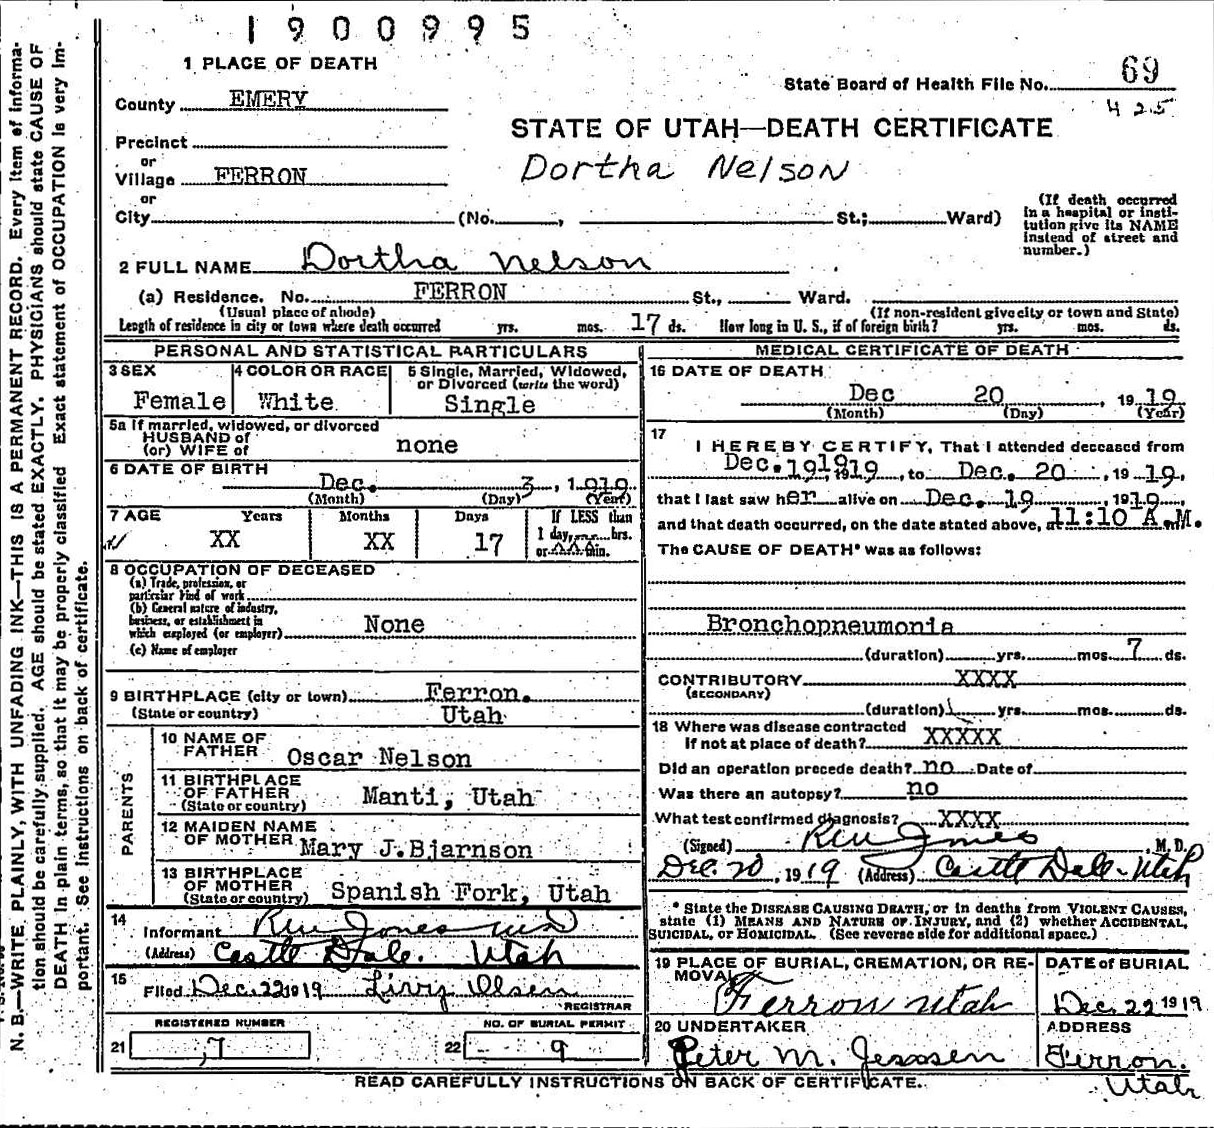 1900995
1 PLACE OF DEATH
State Board of Health File No. 69
425
County EMERY
STATE OF UTAH—DEATH CERTIFICATE
Precinct
or
Village FERRON
Dortha Nelson
or
City (No. , St.; Ward)
(If death occurred
in a hospital or insti-
tution give its NAME
instead of street and
number.)
2 FULL NAME Dortha Nelson
(a) Residence. No. FERRON St., Ward.
(Usual place of abode) (If non-resident give city or town and State)
Length of residence in city or town where death occurred yrs. mos. 17 ds. How long in U. S., if of foreign birth? yrs. mos. ds.
PERSONAL AND STATISTICAL PARTICULARS
3 SEX
Female
4 COLOR OR RACE
White
5 Single, Married, Widowed,
or Divorced (write the word)
Single
5a If married, widowed, or divorced
HUSBAND of
(or) WIFE of none
6 DATE OF BIRTH
Dec. 3, 1919
(Month) (Day) (Year)
7 AGE Years Months Days If LESS than
XX XX 17 1 day, hrs.
or min.
8 OCCUPATION OF DECEASED
(a) Trade, profession, or
particular kind of work
(b) General nature of industry,
business, or establishment in
which employed (or employer) None
(c) Name of employer
9 BIRTHPLACE (city or town) Ferron.
(State or country) Utah
PARENTS
10 NAME OF
FATHER Oscar Nelson
11 BIRTHPLACE
OF FATHER Manti, Utah
(State or country)
12 MAIDEN NAME
OF MOTHER Mary J.Bjarnson
13 BIRTHPLACE
OF MOTHER Spanish Fork, Utah
(State or country)
14
Informant Jones MD
(Address) Castle Dale. Utah
15
Filed Dec. 22 1919 Livy Olsen
REGISTRAR
REGISTERED NUMBER NO. OF BURIAL PERMIT
21 7 22 9
MEDICAL CERTIFICATE OF DEATH
16 DATE OF DEATH
Dec 20, 1919
(Month) (Day) (Year)
17
I HEREBY CERTIFY, That I attended deceased from
Dec. 19 1919, to Dec. 20, 1919,
that I last saw her alive on Dec. 19, 1919,
and that death occurred, on the date stated above, at 11:10 A.M.
The CAUSE OF DEATH* was as follows:
Bronchopneumonia
(duration) yrs. mos. 7 ds.
CONTRIBUTORY XXXX
(SECONDARY)
(duration) yrs. mos. ds.
18 Where was disease contracted
If not at place of death? XXXXX
Did an operation precede death? no Date of
Was there an autopsy? no
What test confirmed diagnosis? XXXX
(Signed) Jones, M. D.
Dec. 20, 1919 (Address) Castle Dale-Utah
* State the DISEASE CAUSING DEATH, or in deaths from VIOLENT CAUSES,
state (1) MEANS AND NATURE OF INJURY, and (2) whether ACCIDENTAL,
SUICIDAL, or HOMICIDAL. (See reverse side for additional space.)
19 PLACE OF BURIAL, CREMATION, OR RE-
MOVAL
Ferron Utah
DATE of BURIAL
Dec. 22 1919
20 UNDERTAKER
Peter M. Jensen
ADDRESS
Ferron.
Utah
READ CAREFULLY INSTRUCTIONS ON BACK OF CERTIFICATE.
N. B.—WRITE PLAINLY, WITH UNFADING INK—THIS IS A PERMANENT RECORD. Every item of informa-
tion should be carefully supplied. AGE should be stated EXACTLY. PHYSICIANS should state CAUSE OF
DEATH in plain terms, so that it may be properly classified Exact statement of OCCUPATION is very im-
portant. See instructions on back of certificate.